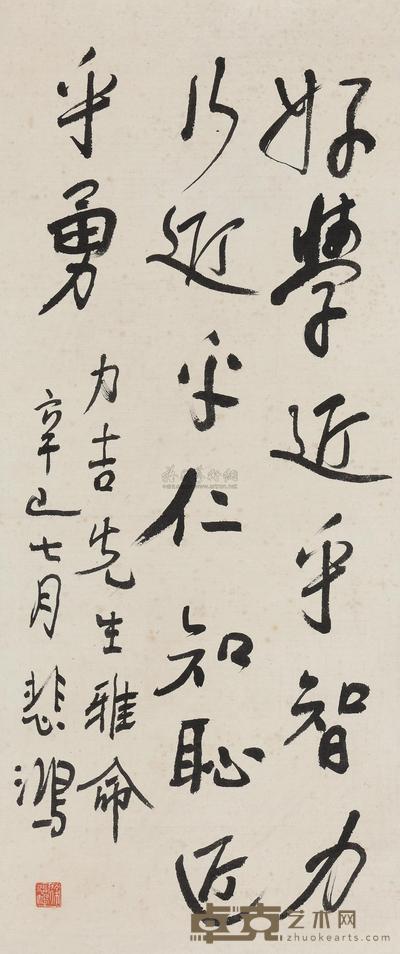 好學近乎智力
行近乎仁知恥近
乎勇
力吉先生雅命
辛巳七月 悲鴻
卓克艺术网
zhuokearts.com